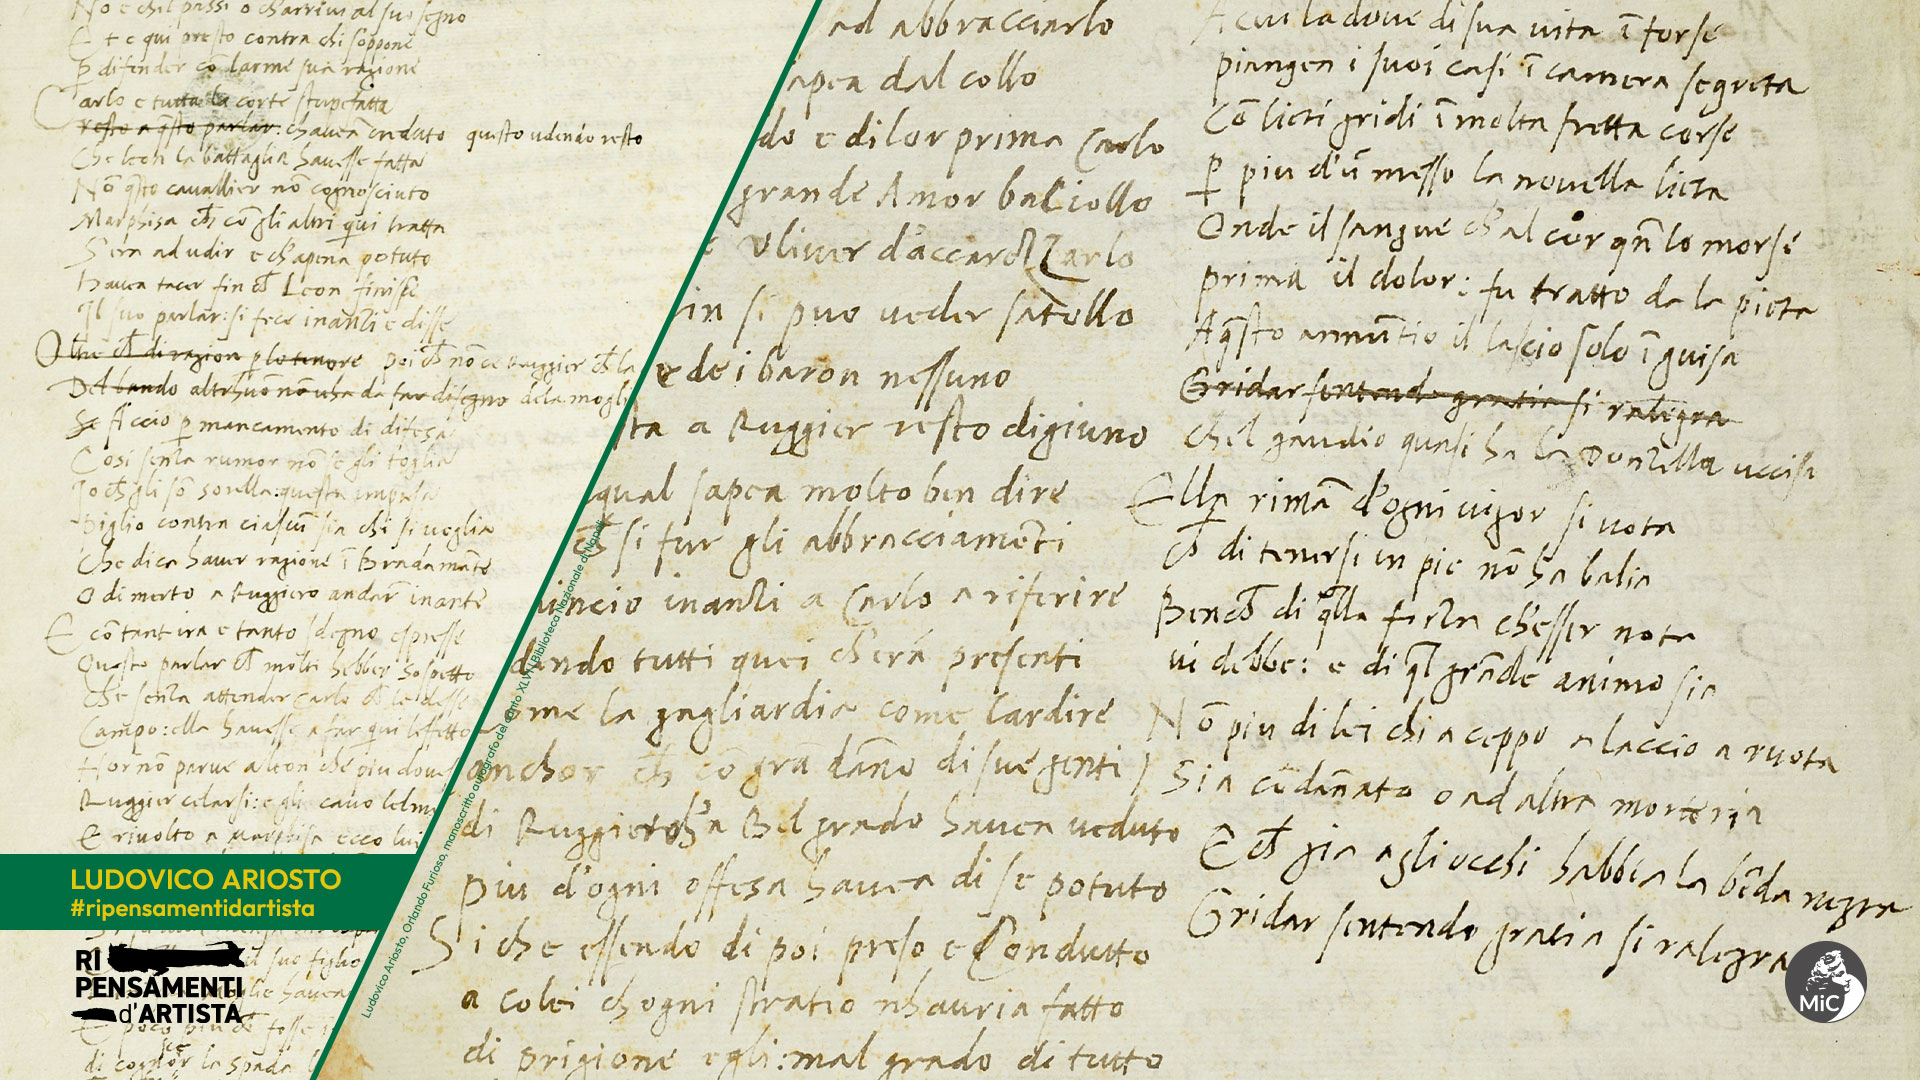 No e chel passi o charrivi al suo segno
E te qui presto contra chi soppone
P difender co larme sua ragione
Carlo e tutta la corte stupefatta
resto a qsto parlar: chavea credato questo udendo resto
Che leon la battaglia havesse fatta
Nõ qsto cavallier nõ cognosciuto
Marphisa ch cõ gli altri qui tratta
S'era ad udir e ch apena potuto
Havea tacer fin ch Leon finisse
Il suo parlar: si fece inanzi e disse
Oltre ch di ragion p lo tenore poi ch nõ ce Ruggier ch la
Del bando altrhuo nõ vha da far disegno dela mogli
Se ficcio p mancamento di difesa
Cosi senza rumor nõ se gli toglia
Io ch gli sõ sorella: questa impresa
Piglio contra ciascũ sia chi si voglia
Che dica haver ragione ĩ Bradamãte
O di merto a Ruggiero andar inante
E cõ tant ira e tanto sdegno espresse
Questo parlar ch molti hebber sospetto
Che senza attender Carlo ch le desse
Campo: ella havesse a far qui leffetto
Hor nõ parve a leon che piu dove
Ruggier celarsi: e gli cavo lelm
E rivolto a marphisa ecco lui
il suo figlio
moglie havea
E poco piu ch fosse
di co la spada
ad abbracciarlo
apea dal collo
do e di lor prima Carlo
grande Amor baciollo
e Uliver d'accarezzarlo
in si puo veder satollo
e de i baron nessuno
sta a Ruggier resto digiuno
qual sapea molto ben dire
ch si fur gli abbracciamẽti
uincio inanzi a Carlo a riferire
dendo tutti quei ch'era presenti
me la gagliardia come lardire
anchor ch cõ gra dãno di sue genti
di Ruggier ch'a Belgrado havea veduto
piu d'ogni offesa havea di se potuto
Si che essendo di poi preso e Condutto
a colei ch ogni stratio nhauria fatto
di prigione egli: mal grado di tutto
A cui la dove di sua vita ĩ forse
piangea i suoi casi ĩ camera segreta
Cõ lieti gridi ĩ molta fretta corse
P piu d'ũ messo la novella lieta
Onde il sangue ch'al cor qñ lo morse
prima il dolor: fu tratto da la pieta
A qsto annũtio il lascio solo ĩ guisa
Gridar sentendo gratia si ralegra
Chel gaudio quasi ha la Donzella uccisa
Ella rimã d'ogni vigor si vota
ch di tenersi in pie nõ ha balia
Bench di qlla forza chesser nota
vi debbe: e di ql grãde animo sia
Nõ piu di lei chi a ceppo a laccio a ruota
Sia cõdãnato o ad altra morte ria
E ch gia agli occhi habbia la bẽda negra
Gridar sentendo gratia si ralegra
Ludovico Ariosto, Orlando Furioso, manoscritto autografo del canto XLVI, Biblioteca Nazionale di Napoli
LUDOVICO ARIOSTO
#ripensamentidartista
RI
PENSAMENTI
d'ARTISTA
MiC